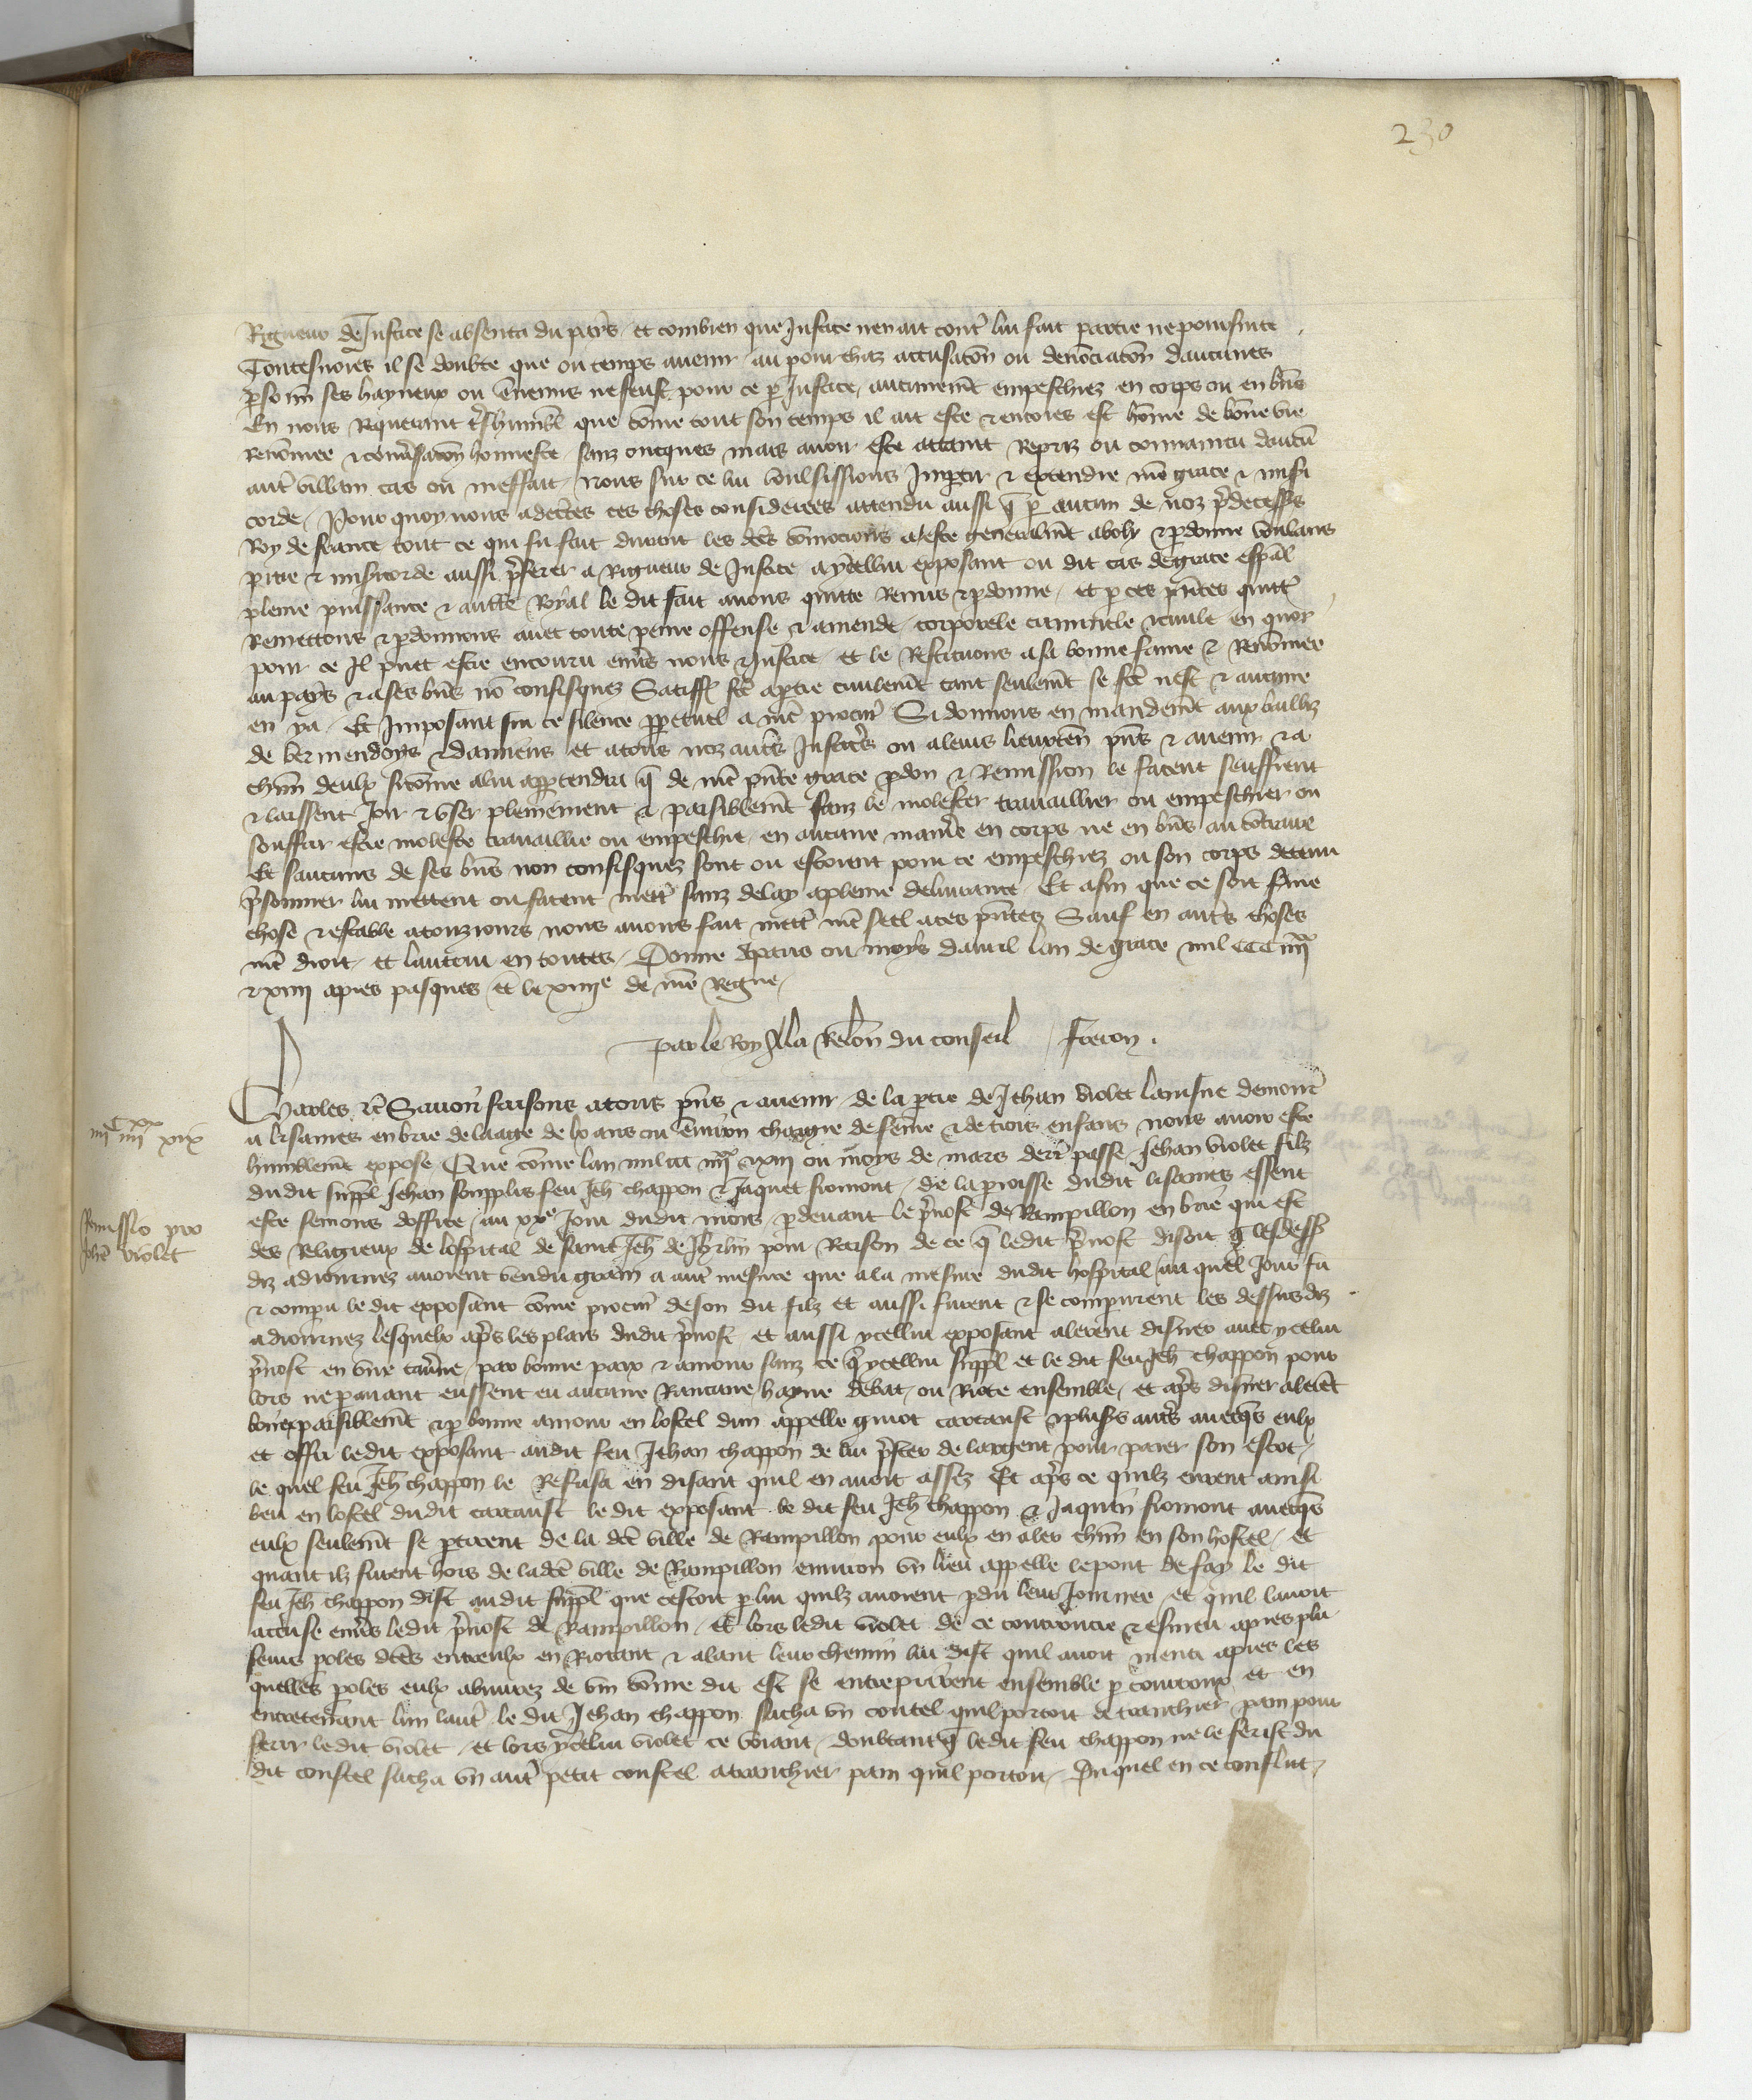 230
Rigueur de Justice se absenta du pays et combien que Justice nen ait contr lui fait partie ne poursuite
Toutesuoies il se doubte que ou temps auenir au pourchaz accusacon ou denonciacon daucunes
psonn ses hayneux ou ennemis ne feust pour ce p Justice aucunemt empeschiez en corps ou en bns
En nous Requerant treshumbl que come tout son temps il ait este & encores est home de bone vie
renomee & conusacon honneste sanz oncques mais auoir este attaint Repris ou conuaincu daucu
autr villain cas ou meffait nous sur ce lui voulsissions Impartir & extendre nre grace & misi
corde Pour quoy nous adctes ces choses considerees attendu aussi q p aucun de noz predecesss
Roy de france tout ce qui fu fait durant les dcts comocions a este generalmt aboly & pdonne voulans
pitie & misicorde aussi preferer a Rigueur de Justice a ycellui exposant ou dit cas de grace espal
pleine puissance & auctte Royal le dit fait auons quitte Remis & pdonne et p ces pntes quitt
Remettons & pdonnons auec toute peine offense & amende corporele criminele & ciuile en quoy
pour ce Il puet estre encouru enus nous & Justice et le Restituons a sa bonne fame & Renomee
au pays & a ses bns no confisquez Satisff fce a ptie ciuilemt tant seulemt se fce nest & aucune
en ya Et Imposant sur ce silence ppetuel a nre procur Si donnons en mandemt aux bailliz
de vermendoys & damiens et a tous noz autrs Justicrs ou a leurs lieuxten pns & auenir & a
chun deulx sicome a lui appertendra q de nre pnte grace pdon & Remission le facent seuffrent
& laissent Joir & vser plainement & paisiblemt sanz le molester trauaillier ou empeschier ou
souffrir estre moleste trauaillie ou empeschie en aucune manire en corps ne en bns au contraire
Et saucuns de ses bns non confisquez sont ou estoient pour ce empeschiez ou son corps detenu
prisonnier lui mettent ou facent mettr sanz delay a pleine deliurance Et afin que ce soit ferme
chose & estable a tousiours nous auons fait mettr nre seel a ces pntes Sauf en autrs choses
nre droit et lautrui en toutes Donne a paris ou moys dauril lan de grace mil CCC iiii xx
& xiiii apres pasques et le xiiiie de nre Regne
Par le Roy A la Relon du conseil freron
Charles &c Sauoir faisons a tous pns & auenir de la ptie de Jehan violet lainsne demourt
a lisaines en brie de laage de lx ans ou enuiron chargie de feme & de trois enfans nous auoir este
humblemt expose Que come lan mil ccc iiii xx & xiii ou moys de mars derr passe Jehan violet filz
dudit suppl Jehan souppliz feu Jeh chappon & Jaquet fromont de la proisse dudit lisaines essent
este semons doffice au xxe Jour dudit mois pdeuant le preuost de Rampillon en brie qui est
des Religieux de lospital de saint Jeh de Jhrlm pour Raison de ce q ledit preuost disoit q lesdess
diz adiournez auoient vendu grain a autr mesure que a la mesure dudit hospital au quel Jour fu
& compu le dit exposant come procur de son dit filz et aussi furent & se comparurent les dessusdiz
adiournez lesquelx aprs les plais dudit preuost et aussi ycellui exposant alerent disner auec ycelui
preuost en vne tauerne par bonne paix & amour sanz ce q ycellui suppl et le dit feu Jeh chappon pour
lors ne parauant eussent eu aucune Rancune hayne debat ou Riote ensemble et aprs disner alerēt
boire paisiblemt & p bonne amour en lostel dun appelle guiot cartaust & plusrs autrs auecqs eulx
et offri ledit exposant audit feu Jehan chappon de lui prester de largent pour paier son escot
le quel feu Jeh chappon le Refusa en disant quil en auoit assez Et aprs ce quilz eurent ainsi
beu en lostel dudit cartaust le dit exposant le dit feu Jeh chappon & Jaquin fromont auecqs
eulx seulemt se ptirent de la dcte ville de Rampillon pour eulx en aler chun en son hostel et
quant ilz furent hors de ladcte ville de Rampillon enuiron vn lieu appelle le pont de fay le dit
feu Jeh chappon dist audit suppl que cestoit p lui quilz auoient pdu leur Journee et quil lauoit
accuse enus ledit preuost de Rampillon Et lors ledit violet de ce courroucie & esmeu apres plu
seurs poles dctes entreulx en Riotant & alant leur chemin lui dist quil auoit menti apres les
quelles poles eulx abuurez de vin come dit est se entreprirent ensemble p courroux et en
entretenant lun lautr le dit Jehan chappon sacha vn coutel quil portoit a tranchier pain pour
ferir ledit violet et lors ycelui violet ce voiant doubtant q ledit feu chappon ne le ferist du
dit coustel sacha vn autr petit coustel a tranchier pain quil portoit Du quel en ce conflict
iiii C iiii xx xix
Remissio pro
Johe violet